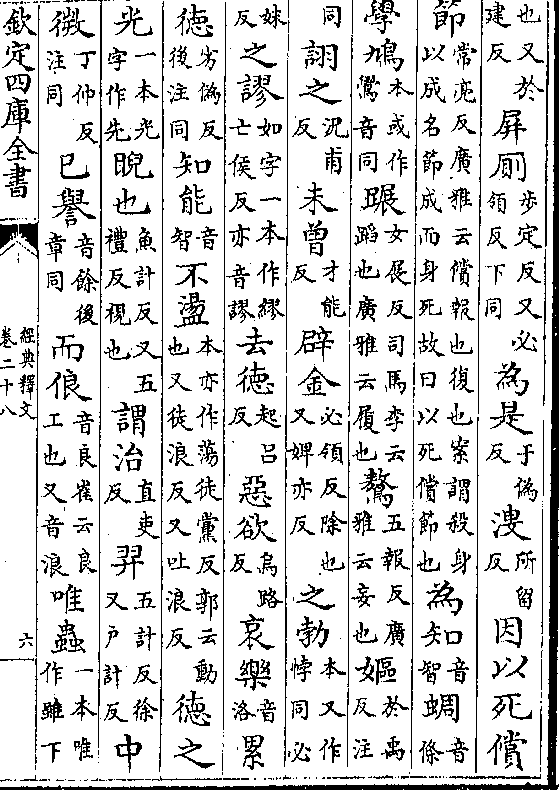 也又於建反屏厠步定反又必領反下同為是于偽反溲所留反因以死償
節常亮反廣雅云償報也復也案謂殺身以成名節成而身死故曰以死償節也為知音智蜩音條
學鳩本或作鷽音同蹍女展反司馬李云蹈也廣雅云履也驁五報反廣雅云妄也嫗於禹反注
同詡之況甫反未曾才能反辟金必領反除也又婢亦反之勃本又作悖同必
妹反之謬如字一本作繆亡侯反亦音謬去德起呂反惡欲烏路反哀樂音洛累
德劣偽反後注同知能音智不盪本亦作蕩徒黨反郭云動也又徒浪反又吐浪反德之
光一本光字作先睨也魚計反又五禮反視也謂治直吏反羿五計反徐又戶計反中
微丁仲反注同已譽音餘後章同而俍音良崔云良工也又音浪唯蟲一本唯作雖下
欽定四庫全書
經典釋文
卷二十八
六